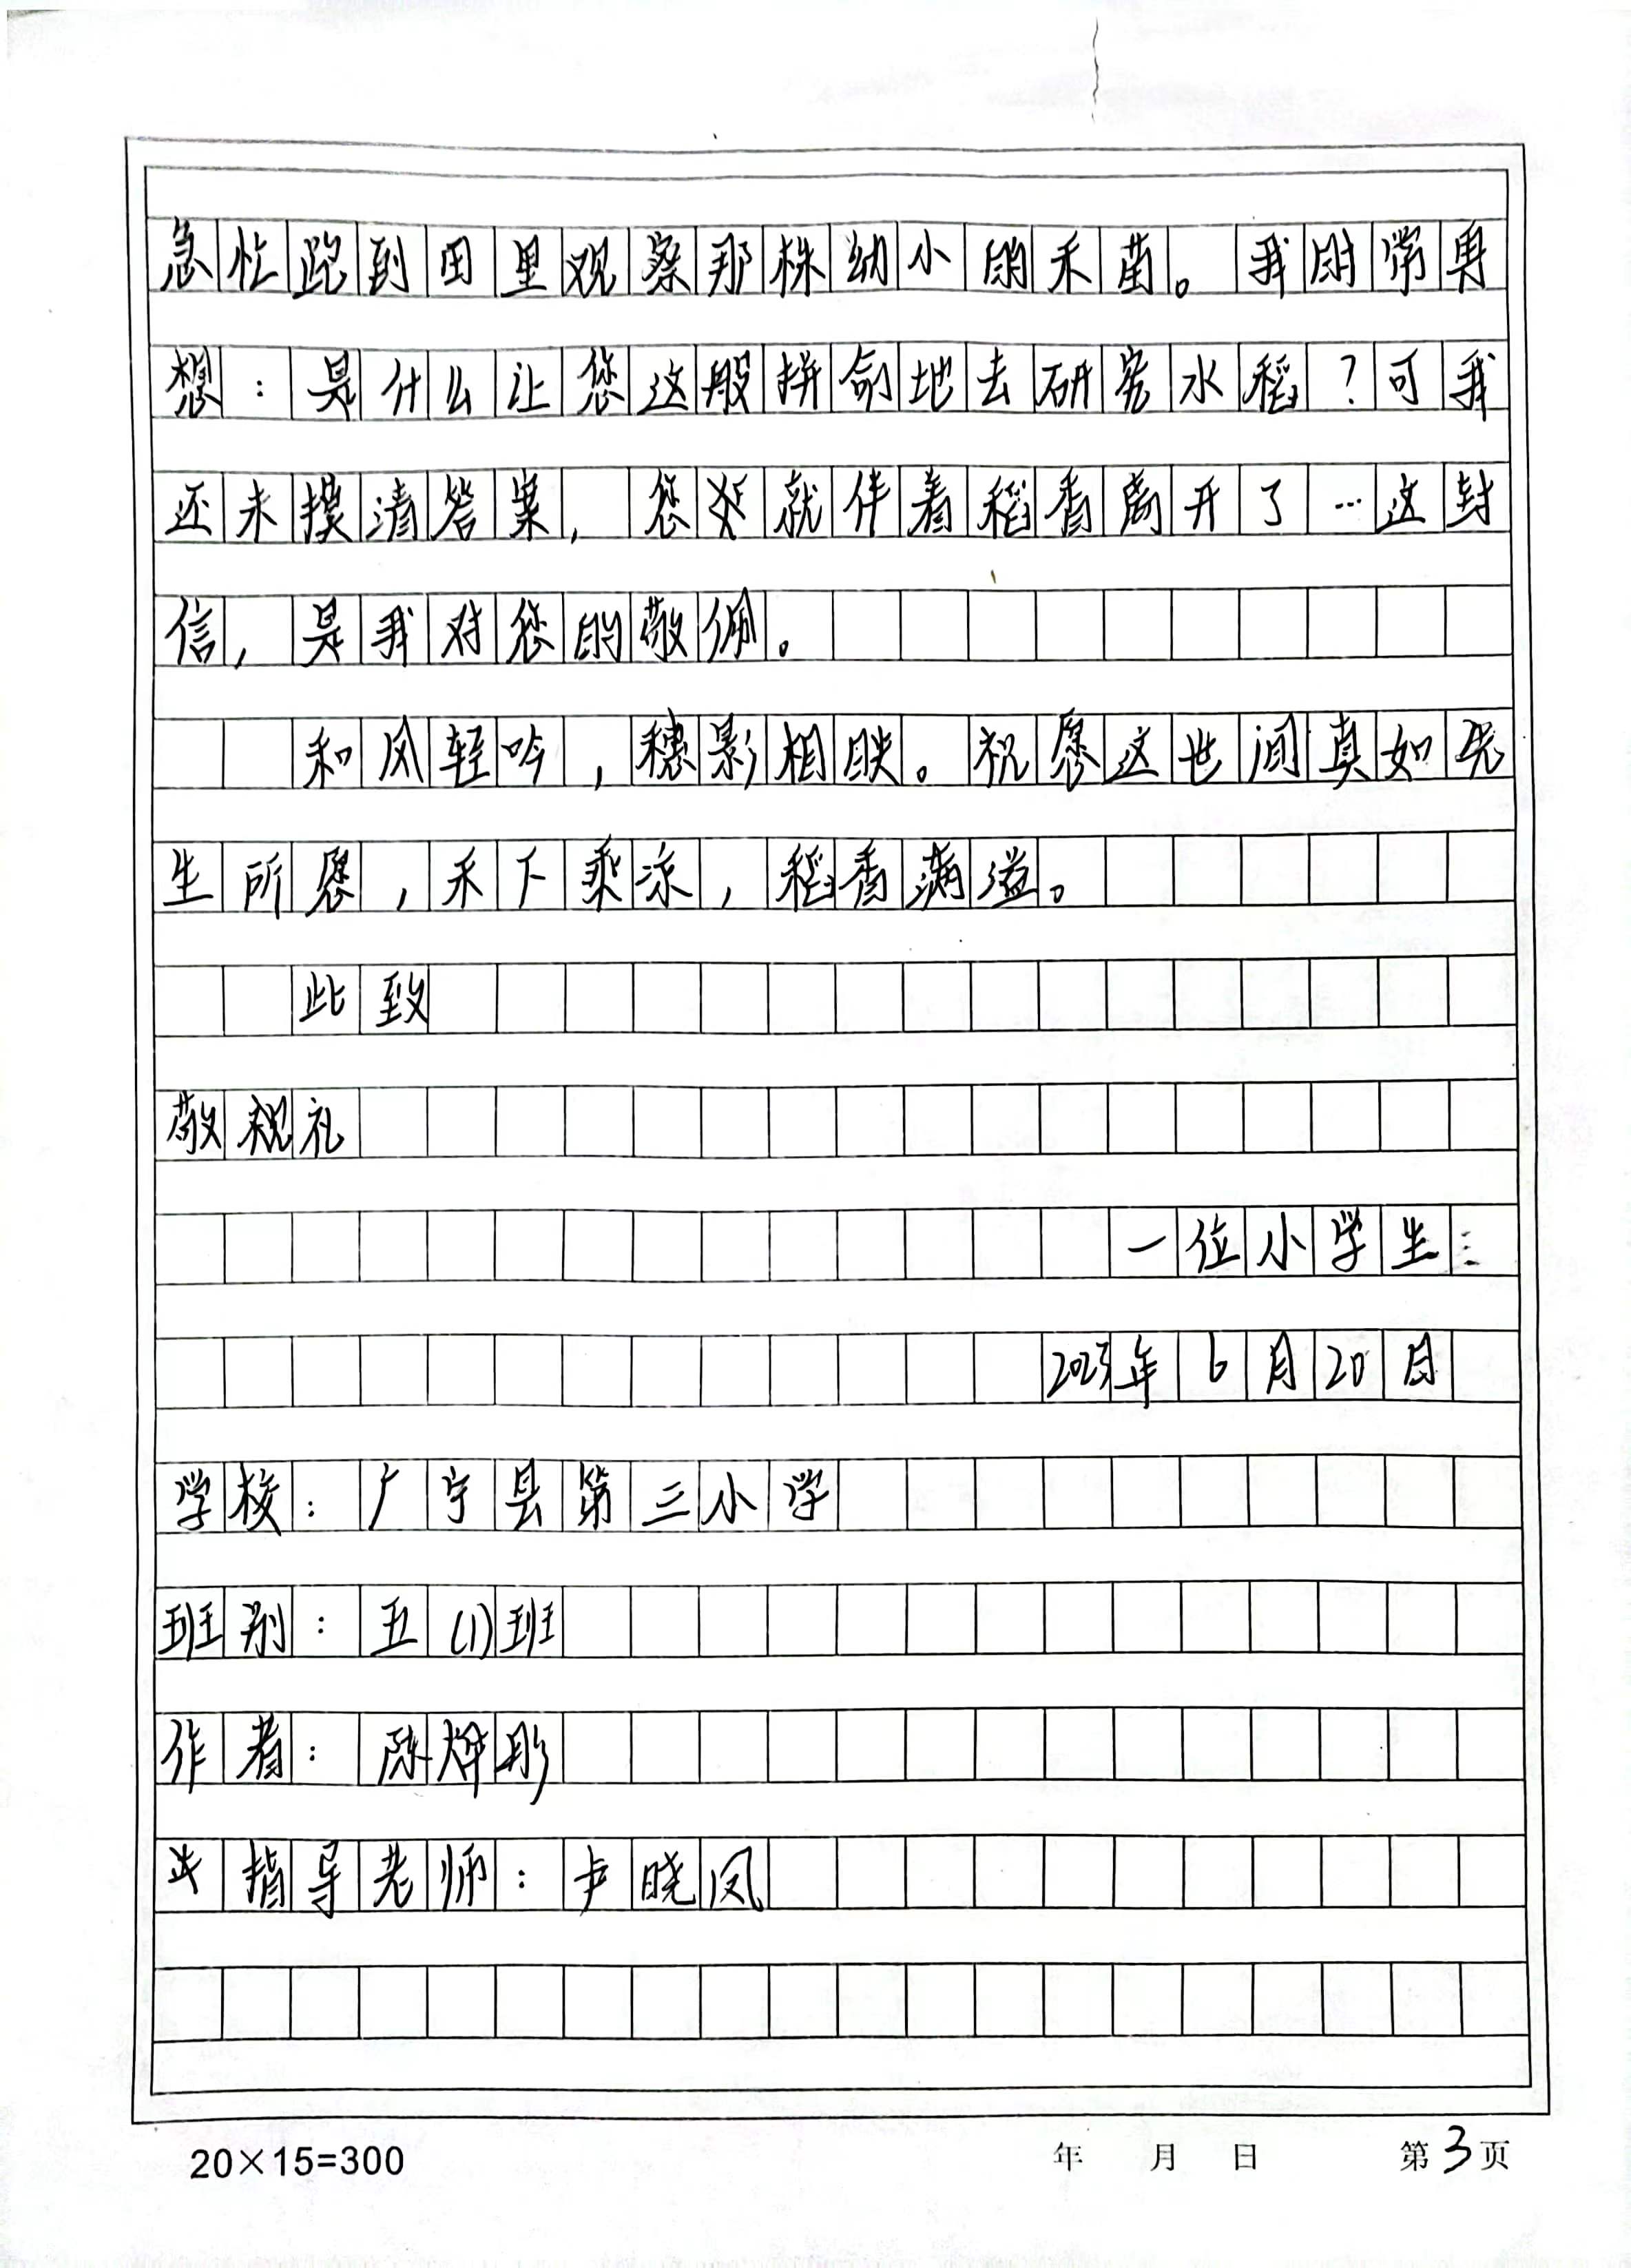 急忙跑到田里观察那株幼小的禾苗。我时常再
想：是什么让您这般拼命地去研究水稻？可我
还未摸清答案，您就伴着稻香离开了…这封
信，是我对您的敬佩。
和风轻吟，穗影相映。祝愿这世间真如先
生所愿，禾下乘凉，稻香满溢。
此致
敬祝礼
一位小学生
2023年6月20日
学校：广宁县第三小学
班别：五(1)班
作者：陈烨彤
指导老师：卢晓凤
20×15=300 年 月 日 第3页